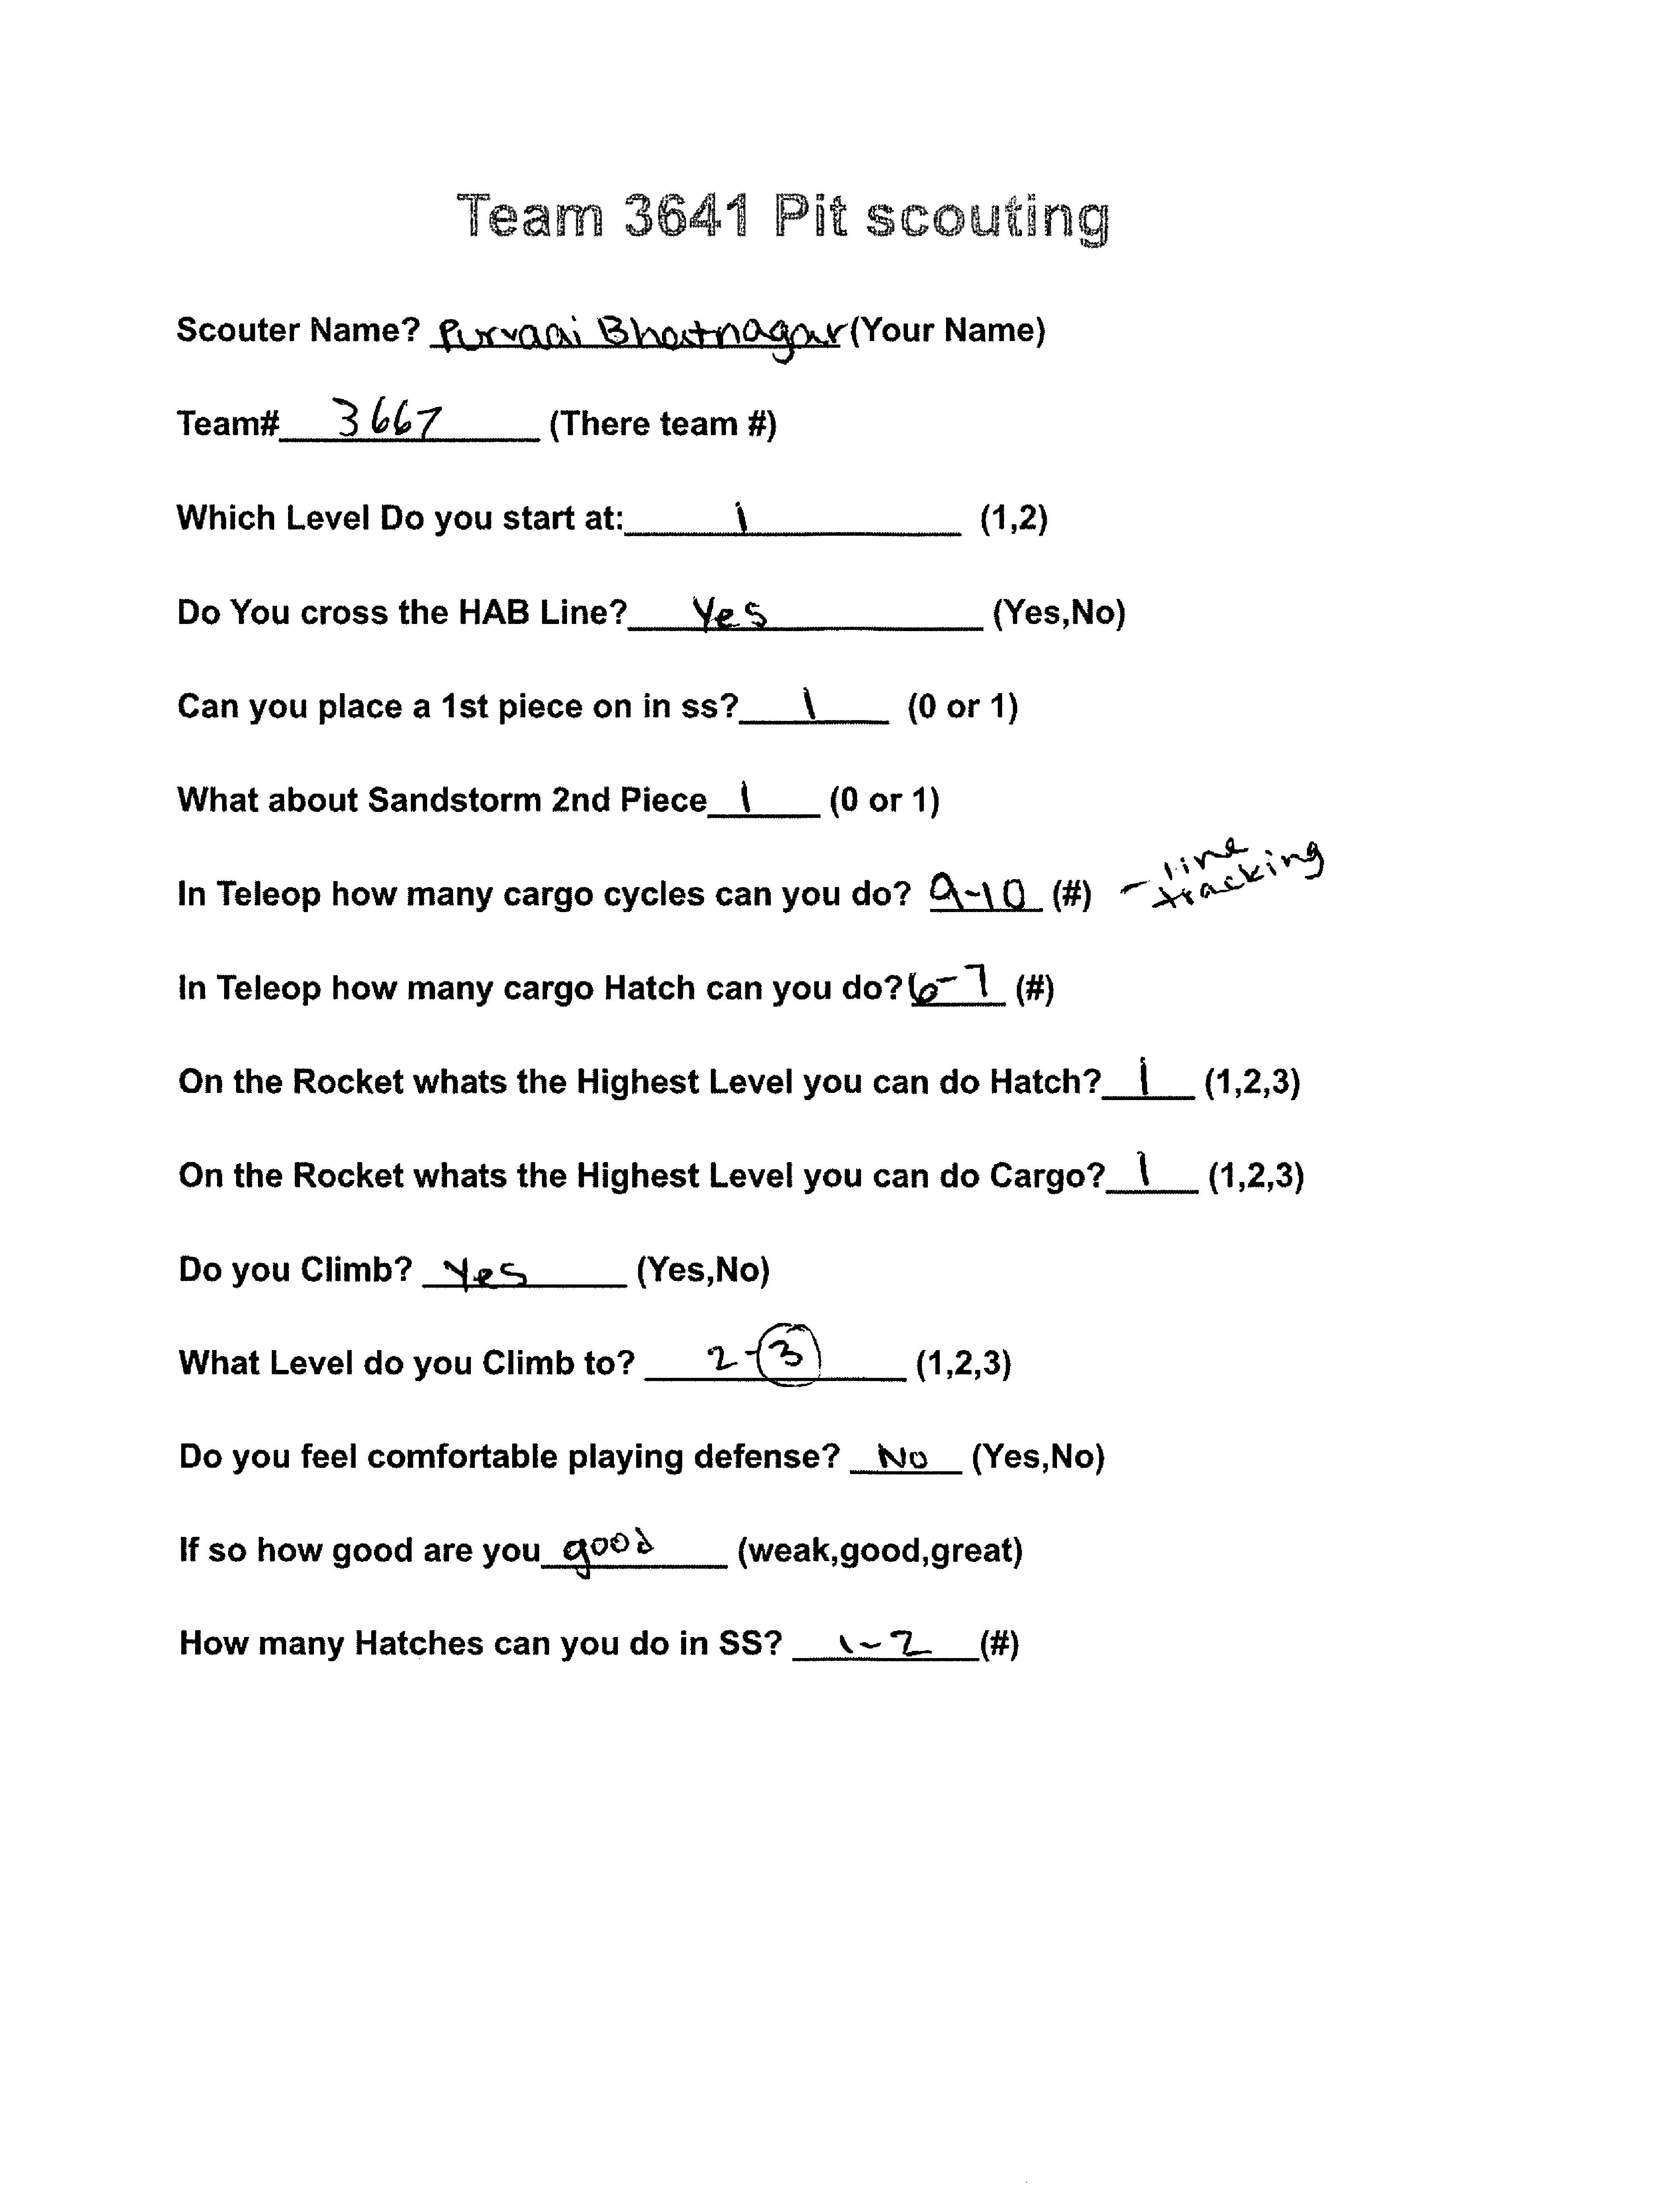 Team 3641 Pit scouting
Scouter Name? Purvaai Bhatnagar (Your Name)
Team# 3667 (There team #)
Which Level Do you start at: 1 (1,2)
Do You cross the HAB Line? Yes (Yes,No)
Can you place a 1st piece on in ss? 1 (0 or 1)
What about Sandstorm 2nd Piece 1 (0 or 1)
In Teleop how many cargo cycles can you do? 9-10 (#) - line tracking
In Teleop how many cargo Hatch can you do? 6-7 (#)
On the Rocket whats the Highest Level you can do Hatch? 1 (1,2,3)
On the Rocket whats the Highest Level you can do Cargo? 1 (1,2,3)
Do you Climb? Yes (Yes,No)
What Level do you Climb to? 2-3 (1,2,3)
Do you feel comfortable playing defense? No (Yes,No)
If so how good are you good (weak,good,great)
How many Hatches can you do in SS? 1-2 (#)